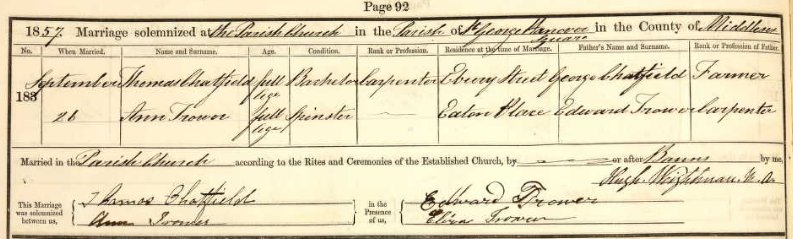 Page 92
1857. Marriage solemnized at the Parish Church in the Parish of St George Hanover Square in the County of Middlesex
No. When Married. Name and Surname. Age. Condition. Rank or Profession. Residence at the time of Marriage. Father's Name and Surname. Rank or Profession of Father.
183 September 26 Thomas Chatfield full age Bachelor Carpenter Ebury Street George Chatfield Farmer
Ann Trower full age Spinster — Eaton Place Edward Trower Carpenter
Married in the Parish Church according to the Rites and Ceremonies of the Established Church, by — or after Banns by me,
Hugh Wightman M.A.
This Marriage was solemnized between us, Thomas Chatfield in the Presence of us, Edward Trower
Ann Trower Eliza Trower